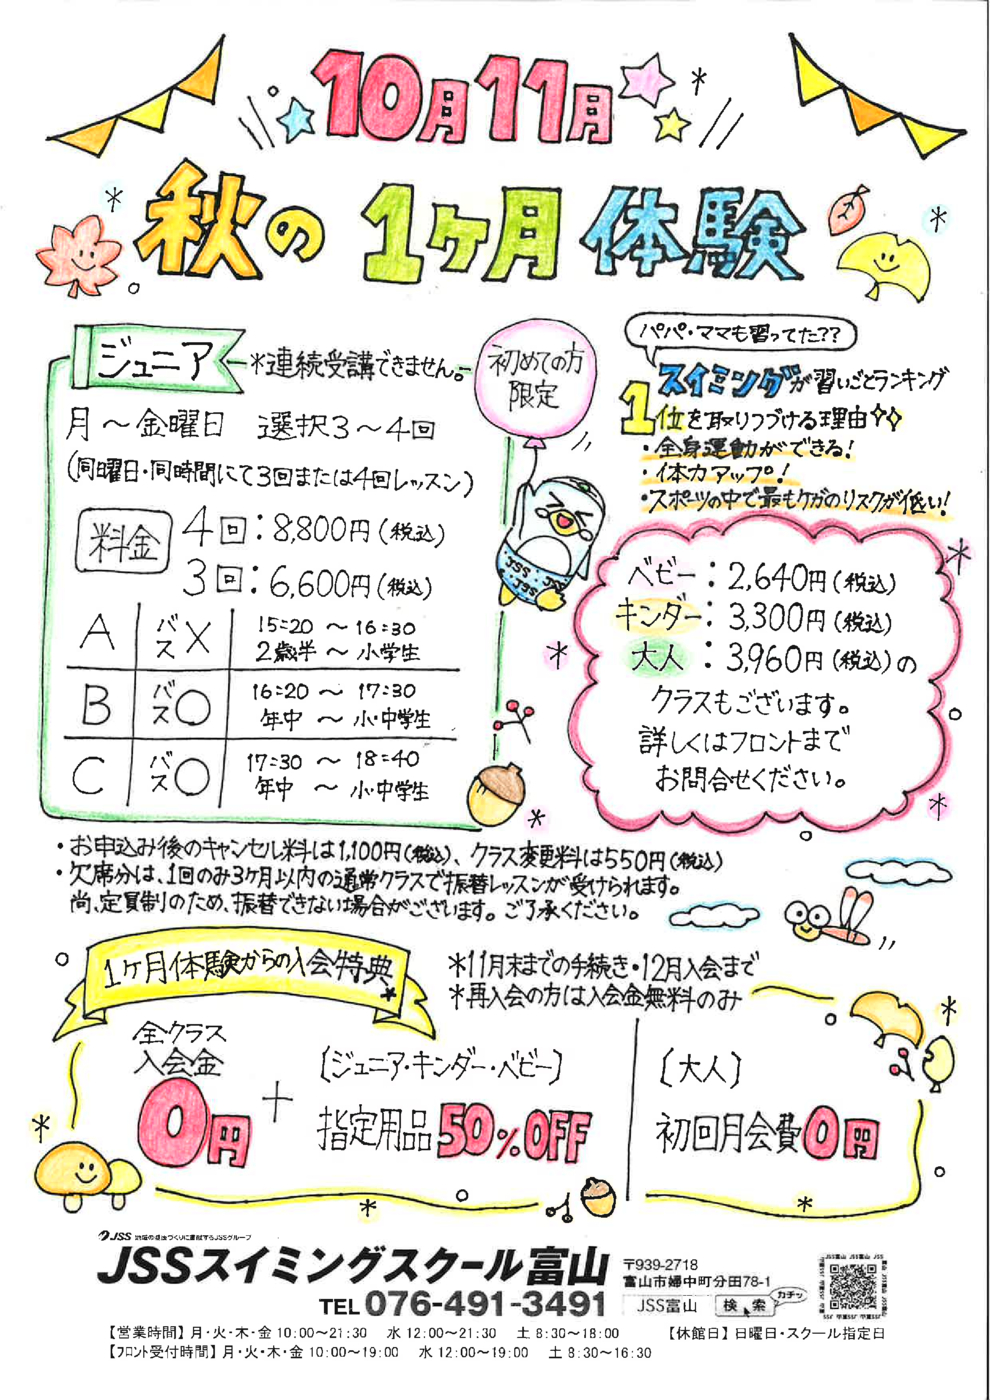 10月11月
秋の1ヶ月体験
ジュニア
*連続受講できません。
初めての方
限定
月～金曜日 選択3～4回
(同曜日・同時間にて3回または4回レッスン)
料金
4回：8,800円(税込)
3回：6,600円(税込)
A バス× 15:20 ～ 16:30
2歳半 ～ 小学生
B バス○ 16:20 ～ 17:30
年中 ～ 小・中学生
C バス○ 17:30 ～ 18:40
年中 ～ 小・中学生
パパ・ママも習ってた??
スイミングが習いごとランキング
1位を取りつづける理由
・全身運動ができる!
・体力アップ!
・スポーツの中で最もケガのリスクが低い!
JSS・JSS
・JSS
ベビー：2,640円(税込)
キンダー：3,300円(税込)
大人：3,960円(税込)の
クラスもございます。
詳しくはフロントまで
お問合せください。
・お申込み後のキャンセル料は1,100円(税込)、クラス変更料は550円(税込)
・欠席分は、1回のみ3ヶ月以内の通常クラスで振替レッスンが受けられます。
尚、定員制のため、振替できない場合がございます。ご了承ください。
1ヶ月体験からの入会特典
*11月末までの手続き・12月入会まで
*再入会の方は入会金無料のみ
全クラス
入会金
0円
+
〔ジュニア・キンダー・ベビー〕
指定用品50%OFF
〔大人〕
初回月会費0円
JSS 地域の健康づくりに貢献するJSSグループ
JSSスイミングスクール富山
TEL 076-491-3491
〒939-2718
富山市婦中町分田78-1
JSS富山 検索
カチッ
【営業時間】月・火・木・金 10:00～21:30 水 12:00～21:30 土 8:30～18:00 【休館日】日曜日・スクール指定日
【フロント受付時間】月・火・木・金 10:00～19:00 水 12:00～19:00 土 8:30～16:30